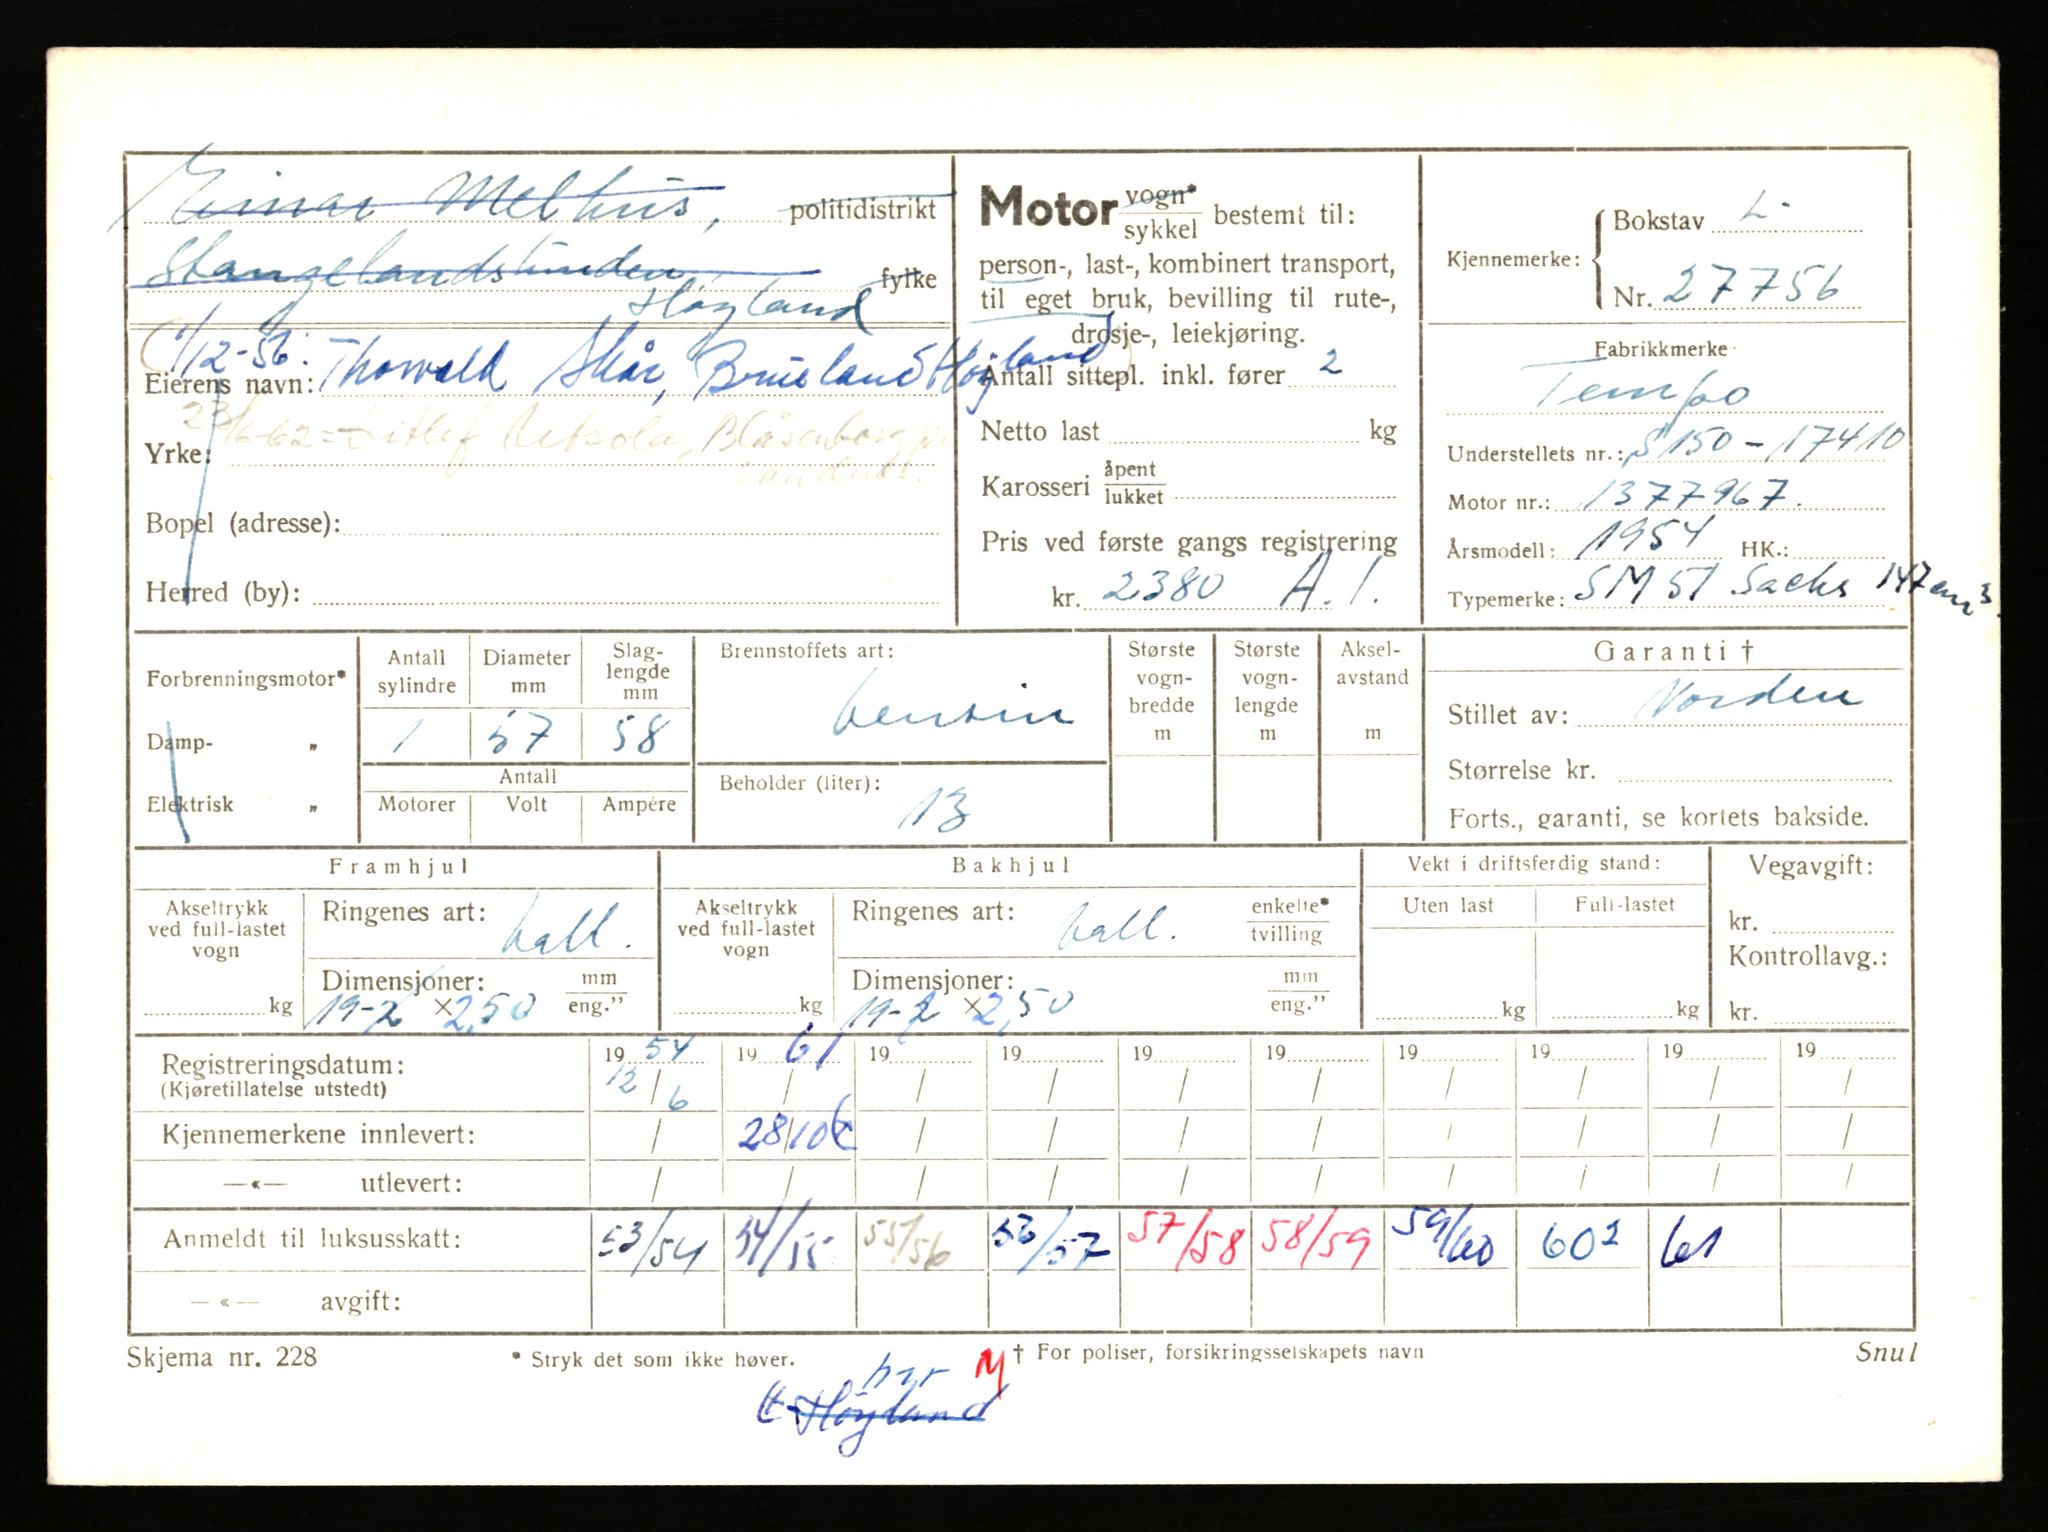 Einar Melhus, politidistrikt
Stangelandstunden, fylke
Høyland
1/12-56:
Eierens navn: Thorvald Skår, Brueland Høyland
23/6-62 = Ditlef
Yrke:
Bopel (adresse):
Herred (by):
Motor vogn* sykkel bestemt til:
person-, last-, kombinert transport,
til eget bruk, bevilling til rute-,
drosje-, leiekjøring.
Antall sittepl. inkl. fører 2
Netto last kg
Karosseri åpent lukket
Pris ved første gangs registrering
kr. 2380 A.1.
Kjennemerke: Bokstav L-
Nr. 27756
Fabrikkmerke
Tempo
Understellets nr.: S150-17410
Motor nr.: 1377967.
Årsmodell: 1954 HK.:
Typemerke: SM 51 Sachs 147 cm3.
Forbrenningsmotor*
Damp- „
Elektrisk „
Antall sylindre Diameter mm Slag-lengde mm
1 57 58
Antall
Motorer Volt Ampére
Brennstoffets art:
bensin
Beholder (liter):
13
Største vogn-bredde m
Største vogn-lengde m
Aksel-avstand m
Garanti †
Stillet av: Norden
Størrelse kr.
Forts., garanti, se kortets bakside.
Framhjul
Akseltrykk ved full-lastet vogn
kg
Ringenes art:
ball.
Dimensjoner: mm eng."
19-2 × 2,50
Bakhjul
Akseltrykk ved full-lastet vogn
kg
Ringenes art: enkelte* tvilling
ball.
Dimensjoner: mm eng."
19-2 × 2,50
Vekt i driftsferdig stand:
Uten last Full-lastet
kg kg
Vegavgift:
kr.
Kontrollavg.:
kr.
Registreringsdatum: 19 54 19 61 19 19 19 19 19 19 19 19
(Kjøretillatelse utstedt) 12/6 / / / / / / / / /
Kjennemerkene innlevert: / 28/10 / / / / / / / /
—«— utlevert: / / / / / / / / / /
Anmeldt til luksusskatt: 53/54 54/55 55/56 56/57 57/58 58/59 59/60 60² 61
—«— avgift:
Skjema nr. 228 * Stryk det som ikke høver. † For poliser, forsikringsselskapets navn Snul
M
Høyland